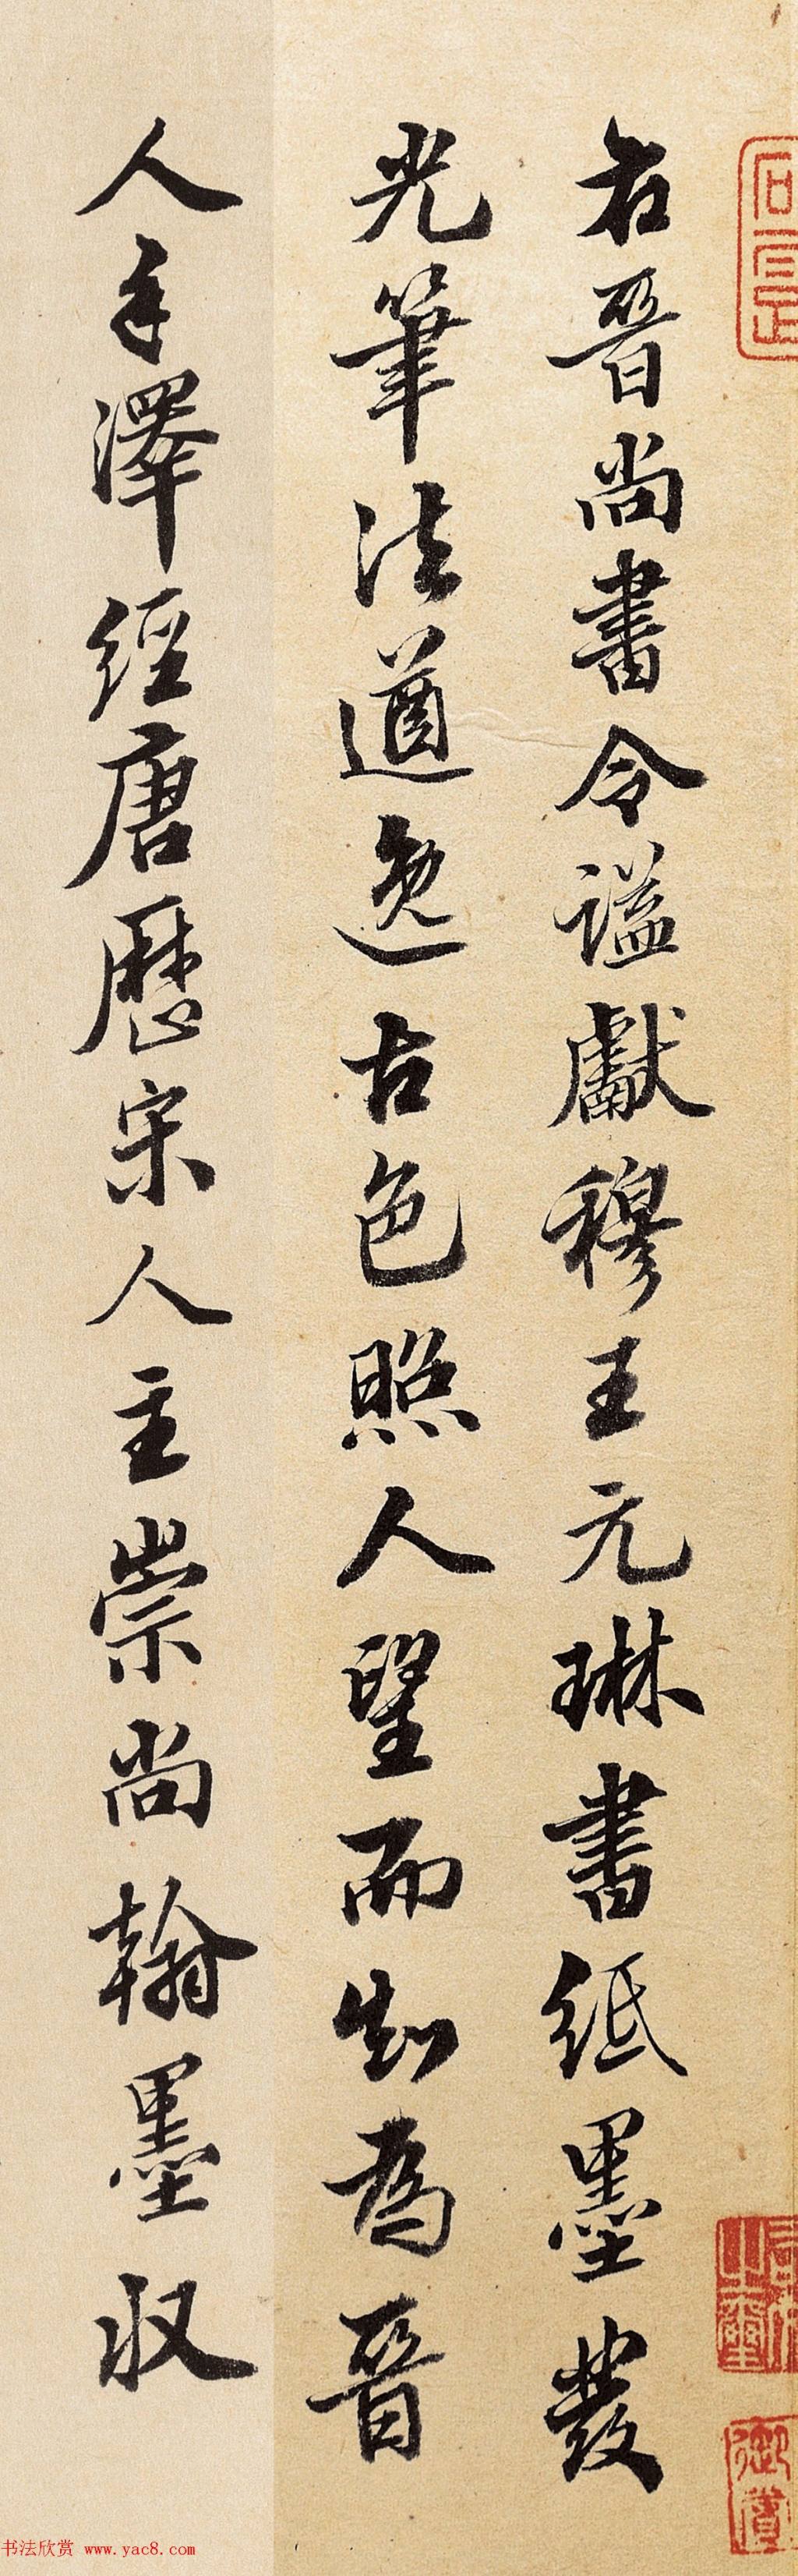 右晉尚書令謚獻穆王元琳書紙墨發
光筆法遒逸古色照人望而知為晉
人手澤經唐歷宋人主崇尚翰墨収
書法欣赏 www.yac8.com